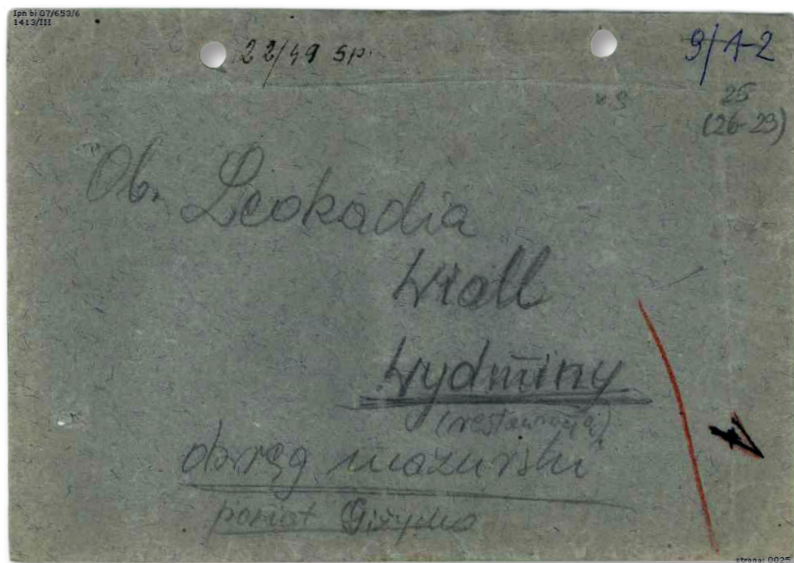 Ipn bi 07/653/6
1413/III
22/49 sp.
9/A-2
25
(26-29)
Ob. Leokadia
Wroll
Wydminy
(restauracja)
okręg mazurski
powiat Giżycko
strona: 0025